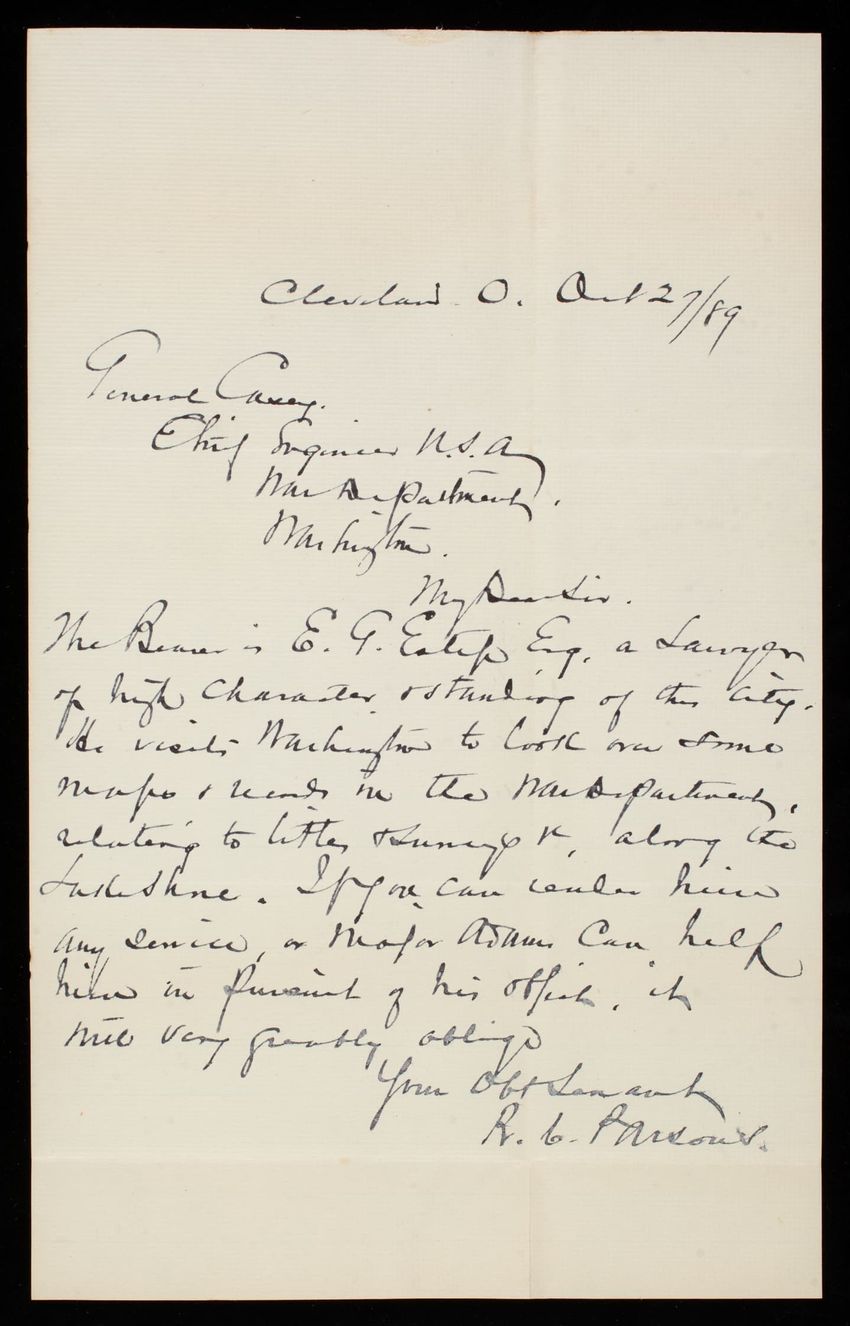 Cleveland O. Oct 27/89
General Casey.
Chief Engineer U.S.A
War Department.
Washington.
My Dear Sir.
The Bearer is E. G. Estep Esq. a Lawyer
of high character & standing of this city.
He visits Washington to look over some
maps & records in the War Department,
relating to titles & surveys &c, along the
Lake Shore. If you can render him
any service, or Major Adams can help
him in pursuit of his object, it
will very greatly oblige
Your Obt Servant
R. C. Parsons.